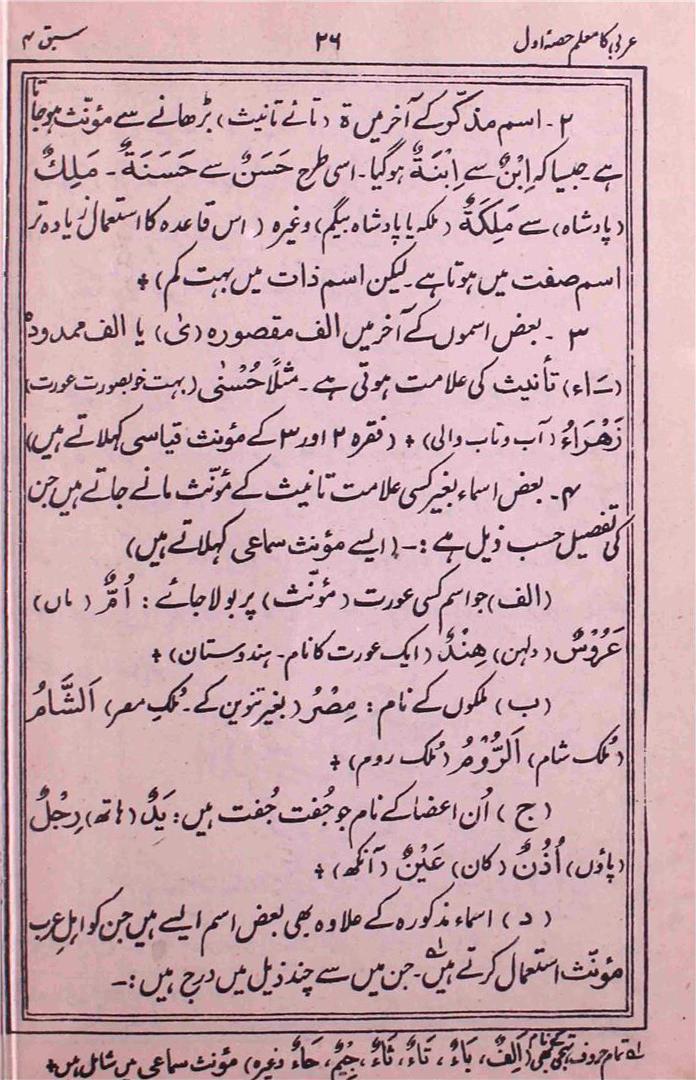 عربی کا معلم حصہ اول ۲۶ سبق ۴
۲ - اسم مذکّر کے آخر میں ة (تائے تانیث) بڑھانے سے مؤنّث ہوجاتا
ہے۔ جیسا کہ اِبْنٌ سے اِبْنَةٌ ہوگیا۔ اسی طرح حَسَنٌ سے حَسَنَةٌ ۔ مَلِكٌ
(پادشاہ) سے مَلِكَةٌ (ملکہ یا پادشاہ بیگم) وغیرہ (اس قاعدہ کا استعمال زیادہ تر
اسم صفت میں ہوتا ہے۔ لیکن اسم ذات میں بہت کم) +
۳ - بعض اسموں کے آخر میں الف مقصورہ (یٰ) یا الف ممدودہ
(ـَ اء) تأنیث کی علامت ہوتی ہے۔ مثلاً حُسْنٰی (بہت خوبصورت عورت)
زَهْرَاءُ (آب و تاب والی) + (فقرہ ۲ اور ۳ کے مؤنث قیاسی کہلاتے ہیں)
۴ - بعض اسماء بغیر کسی علامت تانیث کے مؤنّث مانے جاتے ہیں جن
کی تفصیل حسب ذیل ہے :- (ایسے مؤنث سماعی کہلاتے ہیں)
(الف) جو اسم کسی عورت (مؤنّث) پر بولا جائے : اُمٌّ (ماں)
عَرُوْسٌ (دلہن) هِنْدٌ (ایک عورت کا نام - ہندوستان) +
(ب) ملکوں کے نام : مِصْرُ (بغیر تنوین کے - مُلکِ مصر) اَلشَّامُ
(مُلک شام) اَلرُّوْمُ (مُلک روم) +
(ج) اُن اعضا کے نام جو جُفت جُفت ہیں : یَدٌ (ہاتھ) رِجْلٌ
(پاؤں) اُذُنٌ (کان) عَیْنٌ (آنکھ) +
(د) اسماء مذکورہ کے علاوہ بھی بعض اسم ایسے ہیں جن کو اہلِ عرب
مؤنّث استعمال کرتے ہیں ؎۱۔ جن میں سے چند ذیل میں درج ہیں :-
؎۱ تمام حروف تہجّی بھی (اَلِفٌ، بَاءٌ، تَاءٌ، ثَاءٌ، جِیْمٌ، حَاءٌ وغیرہ) مؤنث سماعی میں شامل ہیں +